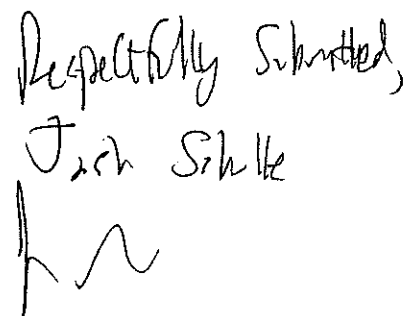 Respectfully Submitted,
Josh Schulte